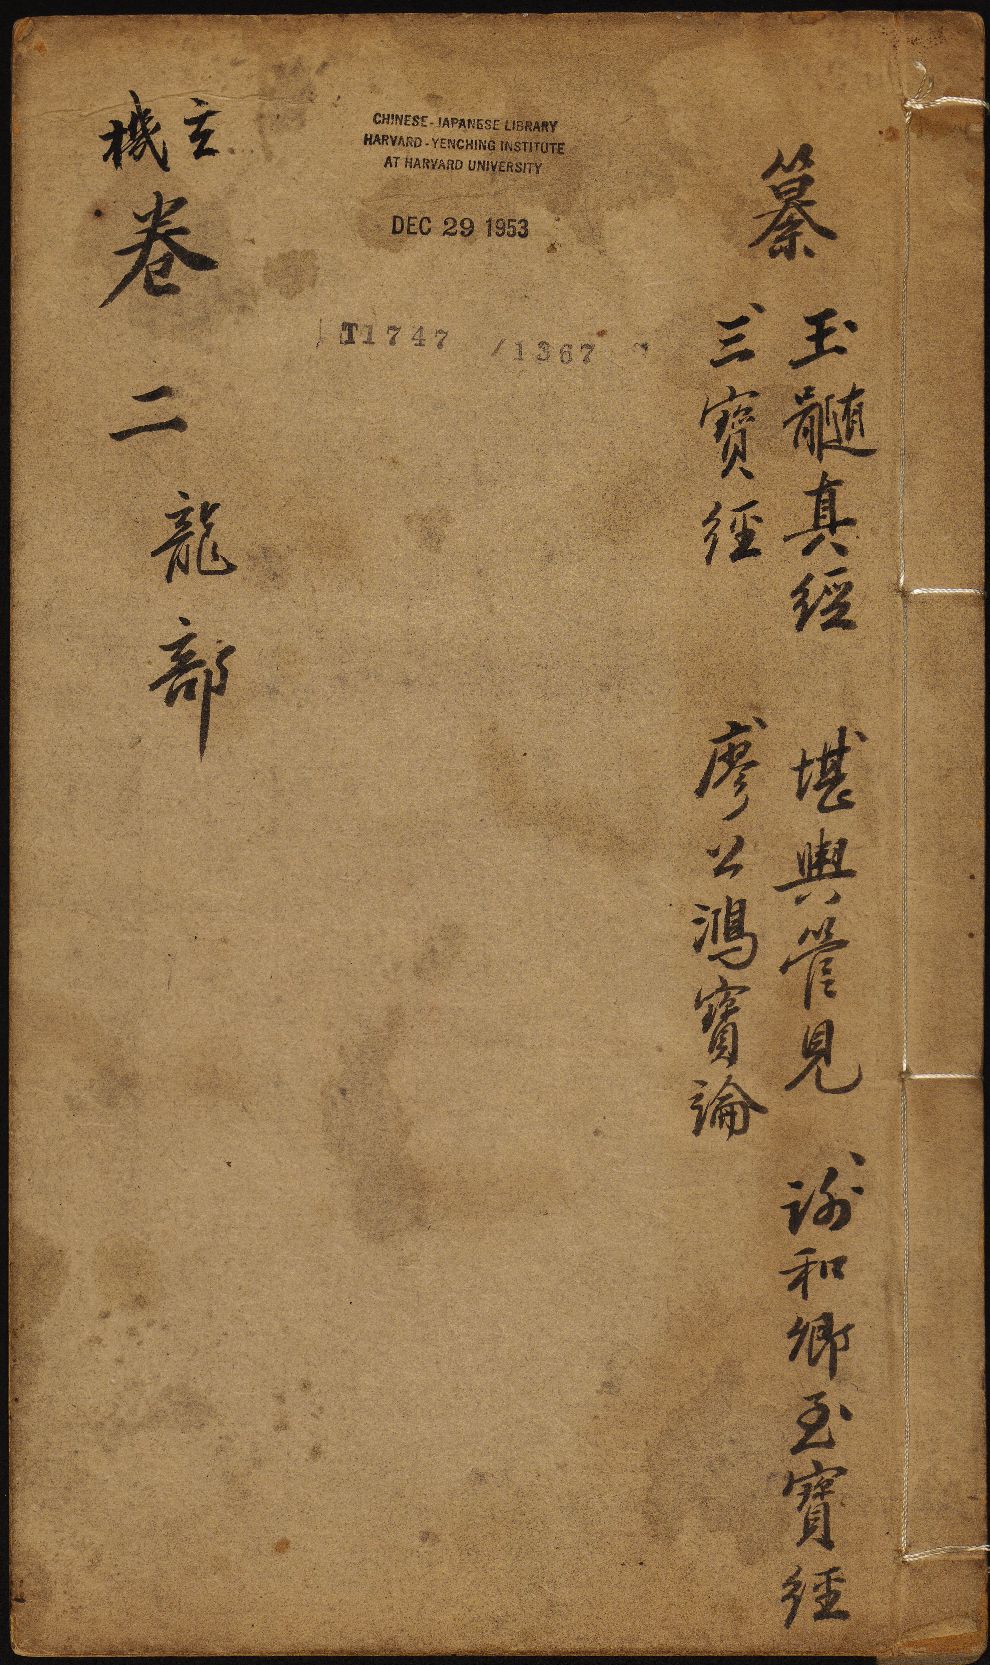 纂
玉髓真經
堪輿管見
謝和卿玉寶經
三寶經
廖公鴻寶論
CHINESE-JAPANESE LIBRARY
HARVARD-YENCHING INSTITUTE
AT HARVARD UNIVERSITY
DEC 29 1953
T1747 /1367
玄機
卷二
龍部